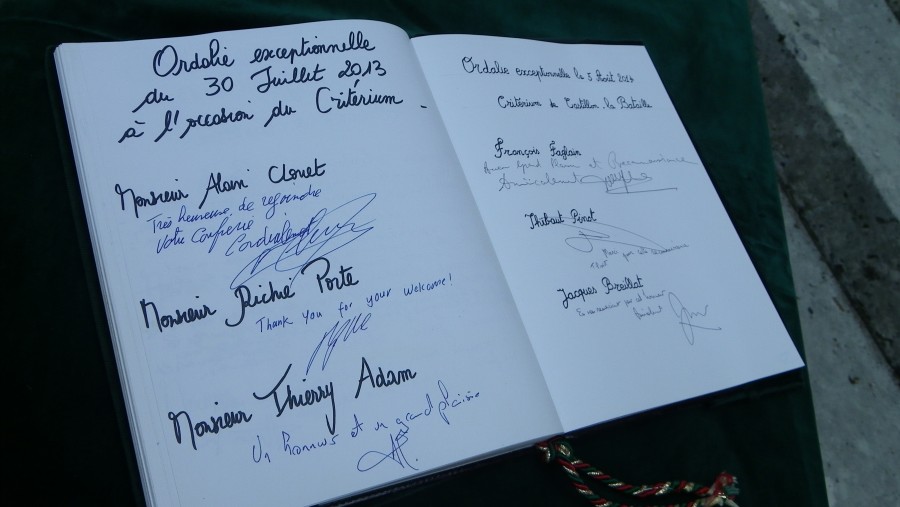 Ordalie exceptionnelle
du 30 Juillet 2013
à l'occasion du Critérium.
Monsieur Alain Clouet
Très heureuse de rejoindre
Votre Confrérie
Cordialement
Monsieur Richie Porte
Thank you for your welcome!
Monsieur Thierry Adam
Un honneur et un grand plaisir
Ordalie exceptionnelle le 5 Août
Critérium de Castillon la Bataille
François Faglain
Avec Grand Plaisir et Reconnaissance
Amicalement
Thibaut Pinot
Merci pour cette reconnaissance
Jacques Breillat
En vous remerciant par cet honneur